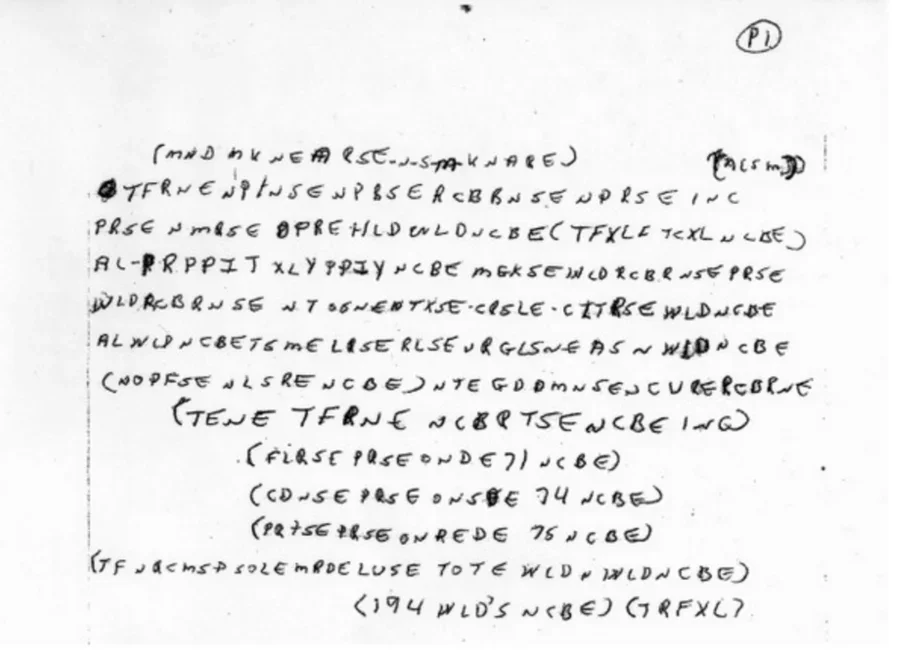 P1
(MND MKNEARSE-N-S-M-KNARE) (ACSM)
TFRNENPINSENPBSERCBBNSENPRSEINC
PRSENMRSEOPREHLDWLDNCBE(TFXLF TCXL NCBE)
AL-PRPPIT XLYPPIYNCBE MGKSEWLDRCBRNSEPRSE
WLDRCBRNSE NTSGNENTXSE-CRSLE-CITRSEWLDNCBE
ALWLDNCBETSMELRSERLSEURGLSNEASNWLDNCBE
(NOPFSENLSRENCBE)NTEGDDMNSENCURERCBRNE
(TENE TFRNE NCBRTSENCBEING)
(FLRSE PRSEONDE71NCBE)
(CDNSE PRSEONSDE 74 NCBE)
(PRTSEPRSEONREDE 75 NCBE)
(TFNRCMSPSOLEMRDELUSE TOTE WLDNWLDNCBE)
(194 WLD'S NCBE)(TRFXL)